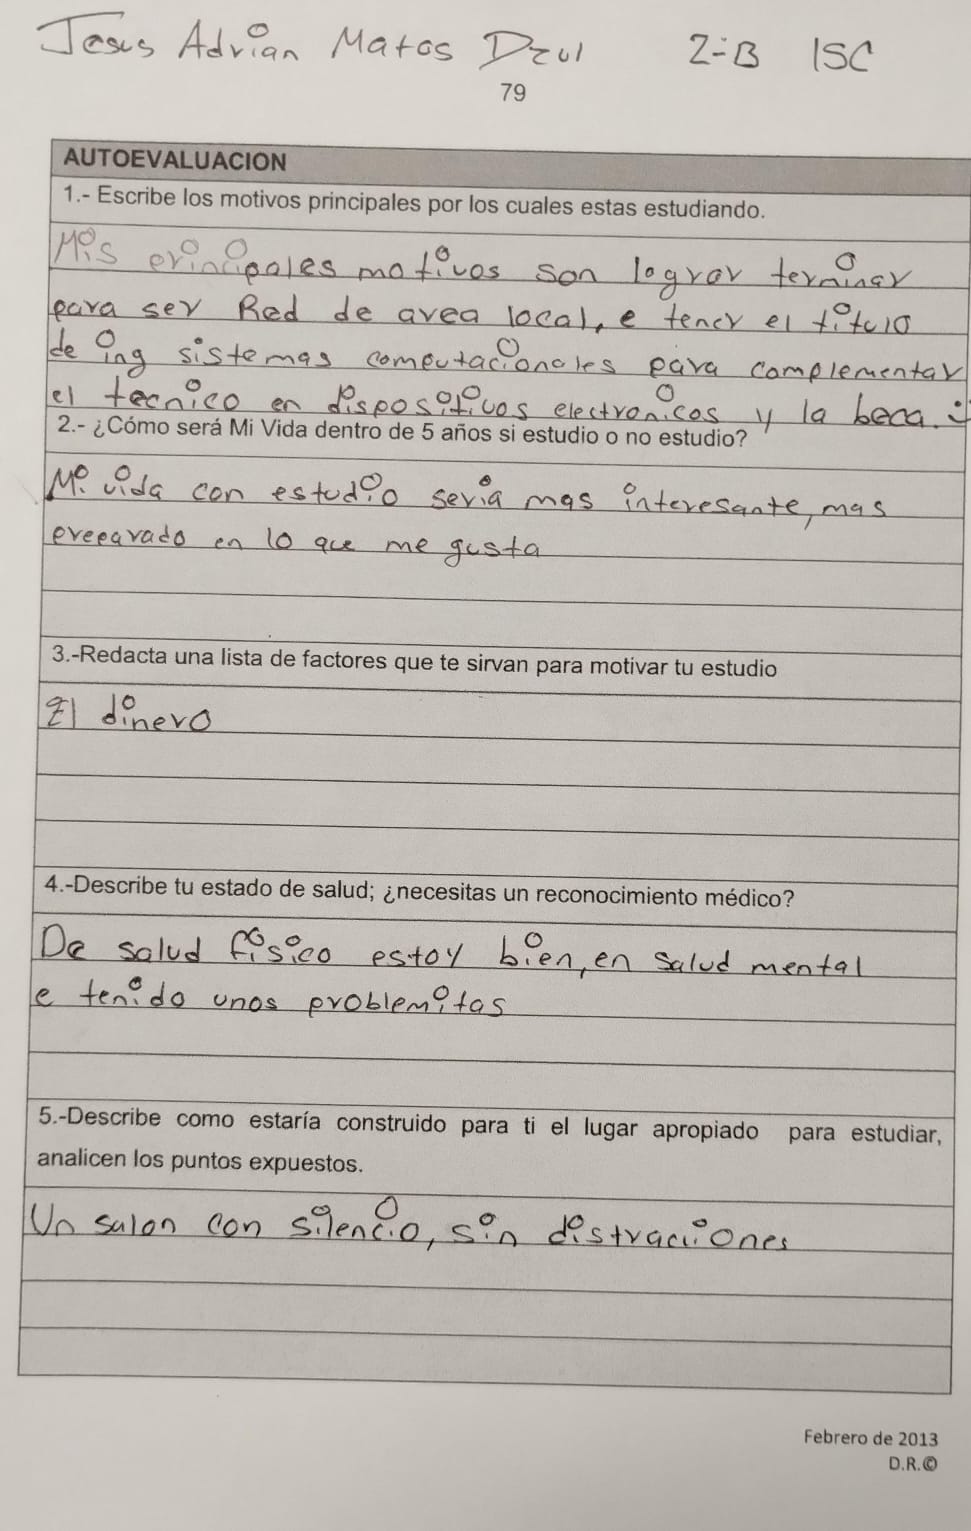 Jesus Adrian Matos Dzul 2-B ISC
79
AUTOEVALUACION
1.- Escribe los motivos principales por los cuales estas estudiando.
Mis principales motivos son lograr terminar
para ser Red de area local, e tener el titulo
de ing sistemas computacionales para complementar
el tecnico en dispositivos electronicos y la beca.
2.- ¿Cómo será Mi Vida dentro de 5 años si estudio o no estudio?
Mi vida con estudio seria mas interesante, mas
preparado en lo que me gusta
3.-Redacta una lista de factores que te sirvan para motivar tu estudio
El dinero
4.-Describe tu estado de salud; ¿necesitas un reconocimiento médico?
De salud fisico estoy bien, en salud mental
e tenido unos problemitas
5.-Describe como estaría construido para ti el lugar apropiado para estudiar,
analicen los puntos expuestos.
Un salon con silencio, sin distracciones
Febrero de 2013
D.R.©